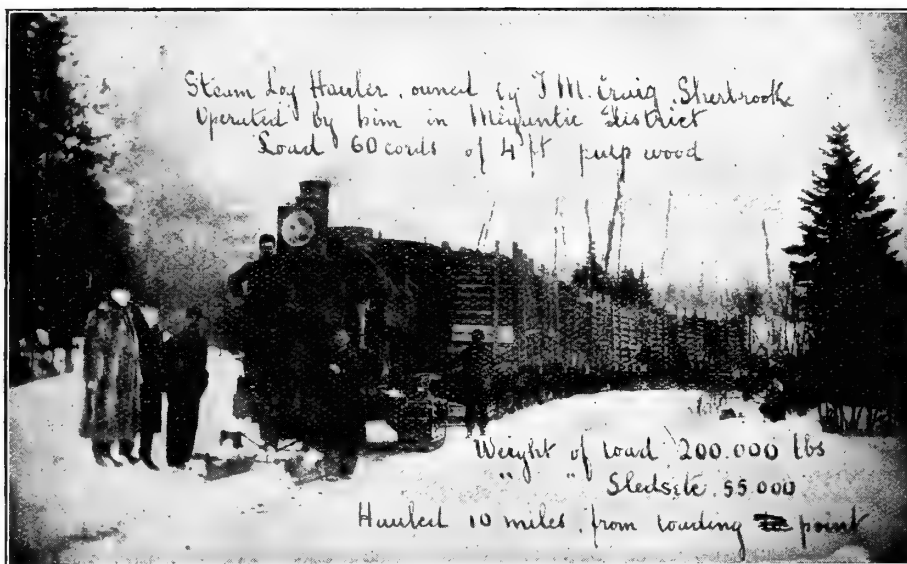 Steam Log Hauler. owned by T M. Craig Sherbrooke
Operated by him in Megantic District
Load 60 cords of 4 ft pulp wood
Weight of load 200.000 lbs
" " Sleds etc. 55.000
Hauled 10 miles. from loading point